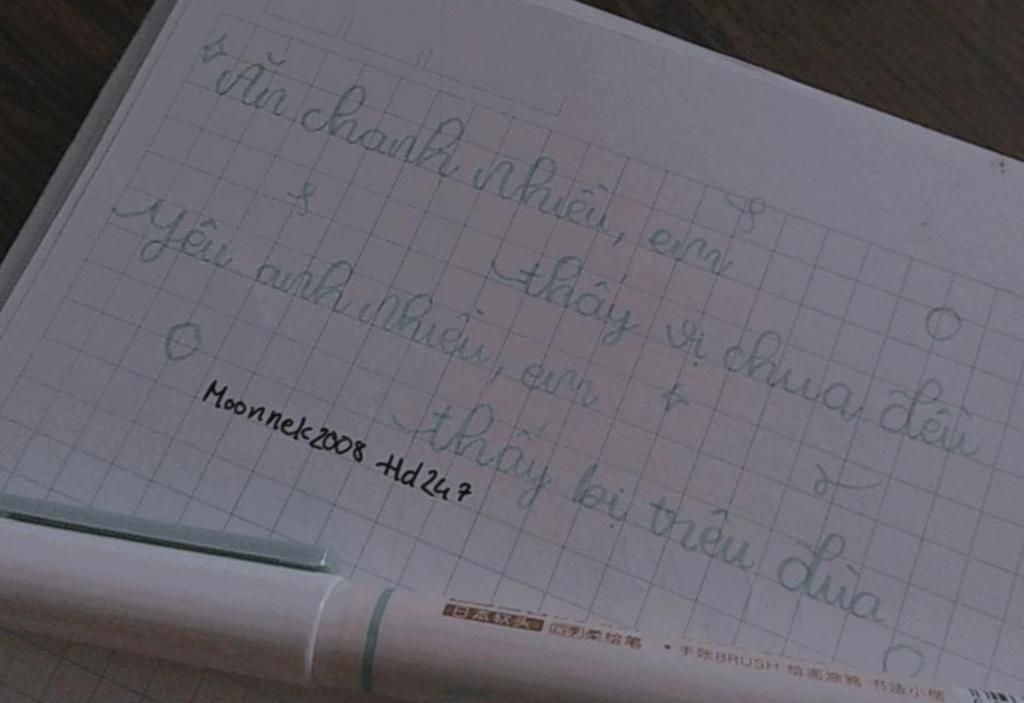 Ăn chanh nhiều, em
thấy vị chua đều
Yêu anh nhiều, em
thấy bị trêu đùa
Moonnek2008 -Hd247
日本软头 四季柔绘笔 • 手账BRUSH 绘画涂鸦 书法小楷